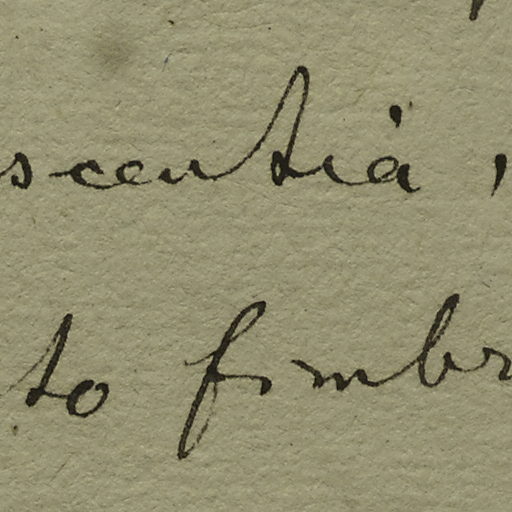 scentia,
to fimbr